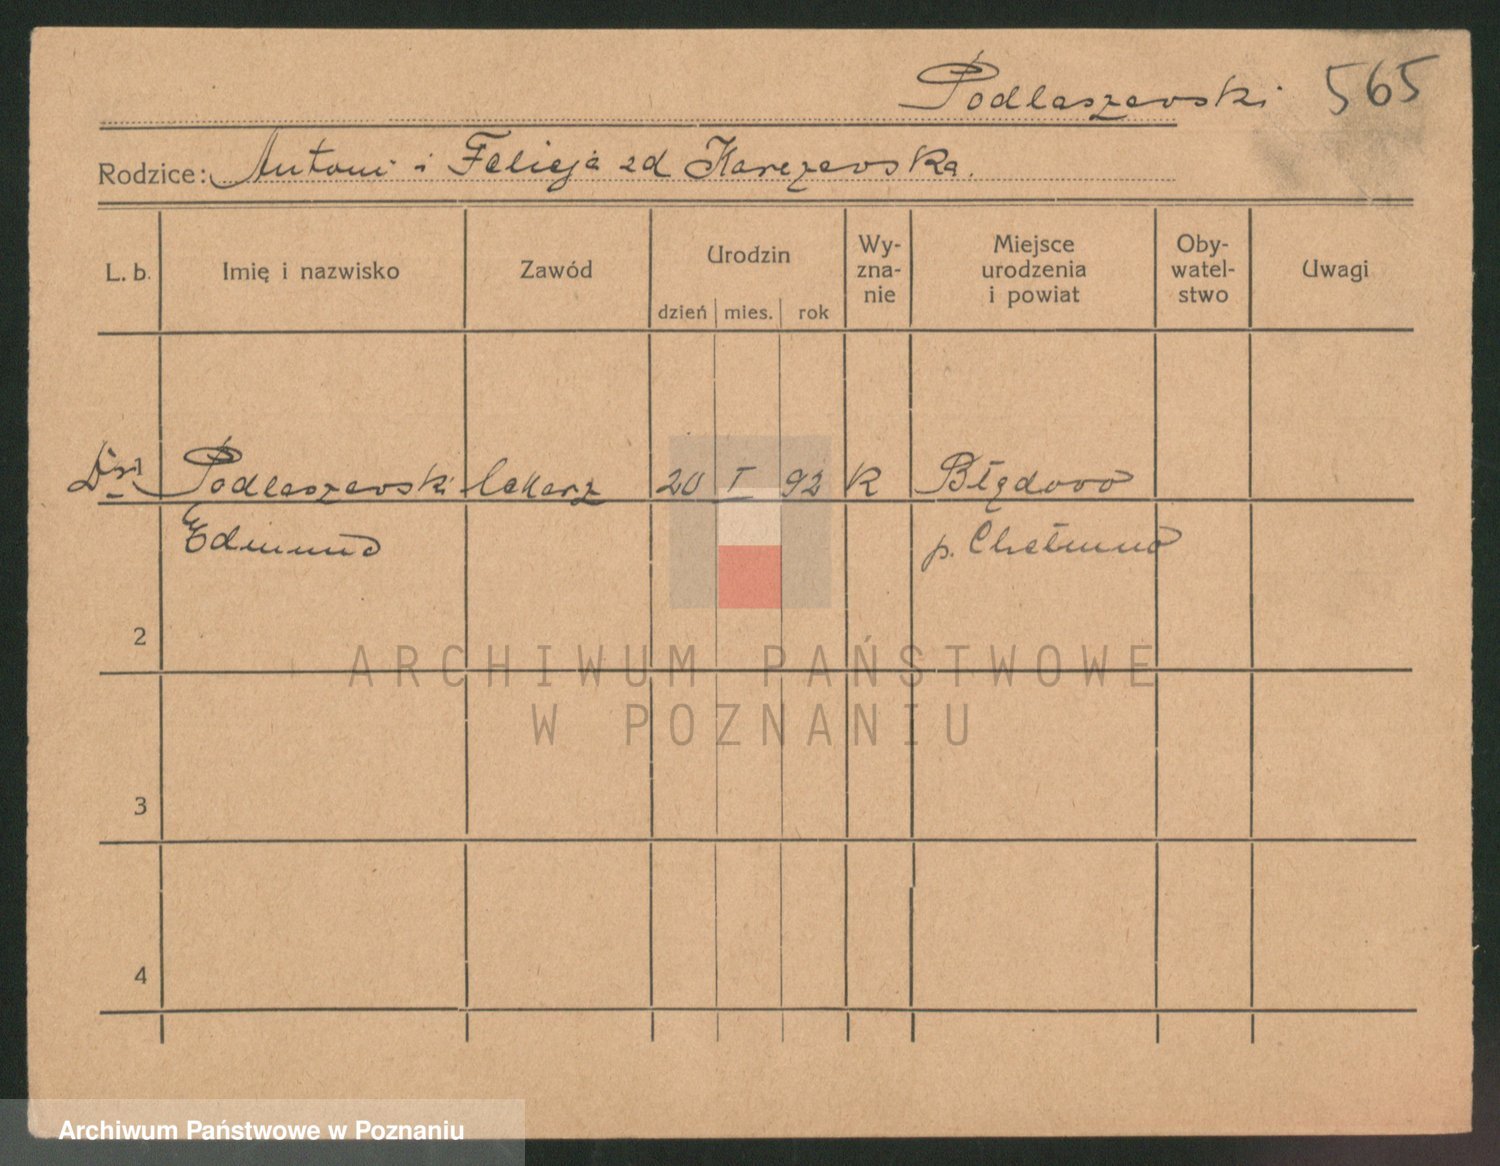 Podlaszewski 565
Rodzice: Antoni i Felicja zd Karczewska.
L. b. Imię i nazwisko Zawód Urodzin dzień mies. rok Wy- zna- nie Miejsce urodzenia i powiat Oby- watel- stwo Uwagi
Dr. 1 Podlaszewski lekarz 20 I 92 K Błędowo
Edmund p. Chełmno
2
ARCHIWUM PAŃSTWOWE
W POZNANIU
3
4
Archiwum Państwowe w Poznaniu